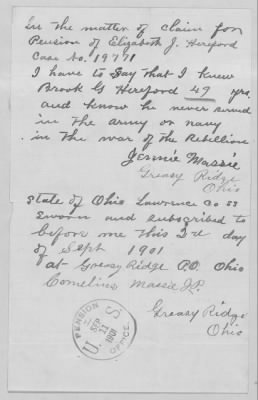 In the matter of claim for
Pension of Elizabeth J. Hereford
Case No. 19771
I have to say that I knew
Brook G Hereford 49 yrs.
and know he never served
in the army or navy
in the war of the Rebellion
Jennie Massie
Greasy Ridge
Ohio
State of Ohio Lawrence Co SS
Sworn and subscribed to
before me this 2rd day
of Sept 1901
at Greasy Ridge P.O. Ohio
Cornelius Massie J.P.
Greasy Ridge
Ohio
U.S. PENSION OFFICE
SEP 11 1901